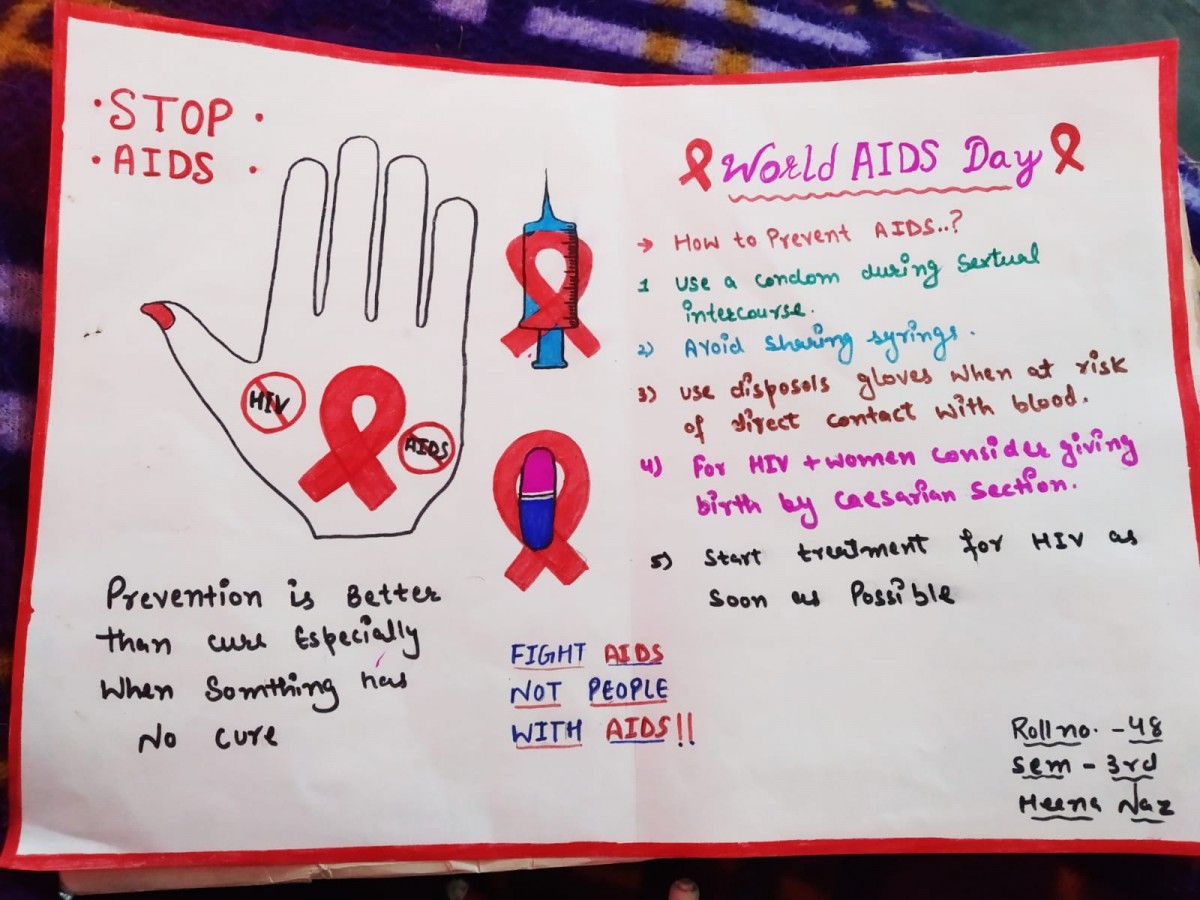 STOP
AIDS
HIV
AIDS
Prevention is Better
than cure Especially
When Somthing has
No cure
FIGHT AIDS
NOT PEOPLE
WITH AIDS!!
World AIDS Day
→ How to Prevent AIDS..?
1 Use a condom during Sextual
intercourse.
2) Avoid Sharing syrings.
3) Use disposols gloves when at risk
of direct contact with blood.
4) For HIV + women consider giving
birth by Caesarian Section.
5) Start treatment for HIV as
Soon as Possible
Roll no. - 48
Sem - 3rd
Heena Naz